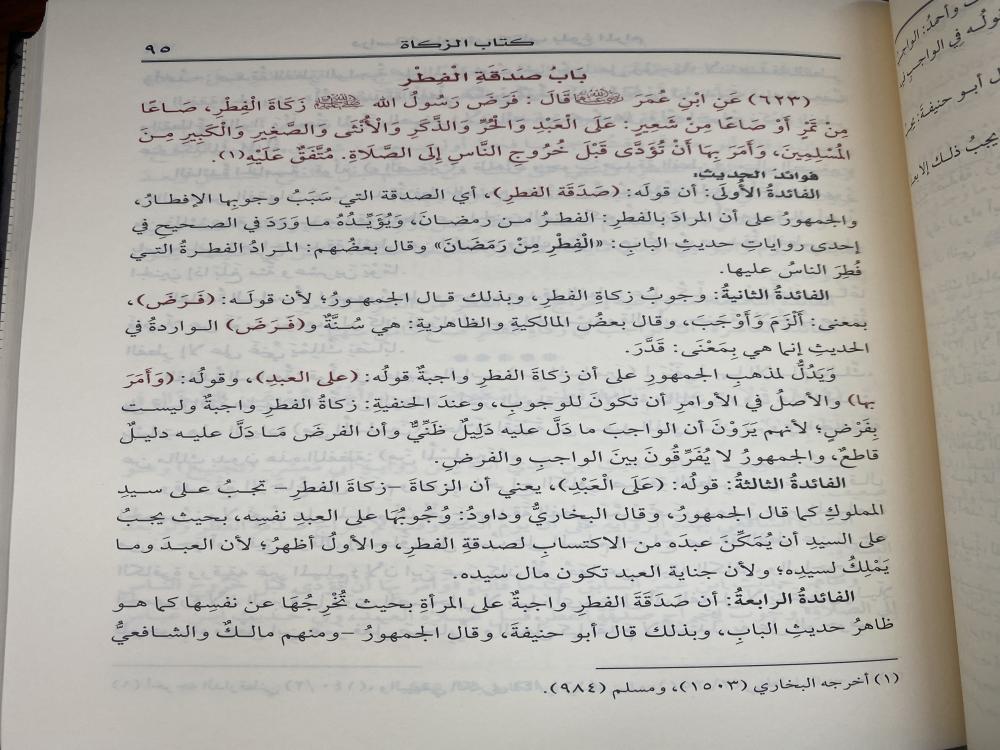 كتاب الزكاة ٩٥
بَابُ صَدَقَةِ الْفِطْرِ
(٦٢٣) عَنِ ابْنِ عُمَرَ قَالَ: فَرَضَ رَسُولُ الله ﷺ زَكَاةَ الْفِطْرِ، صَاعًا
مِنْ تَمْرٍ أَوْ صَاعًا مِنْ شَعِيرٍ: عَلَى الْعَبْدِ وَالْحُرِّ وَالذَّكَرِ وَالْأُنْثَى وَالصَّغِيرِ وَالْكَبِيرِ مِنَ
الْمُسْلِمِينَ، وَأَمَرَ بِهَا أَنْ تُؤَدَّى قَبْلَ خُرُوجِ النَّاسِ إِلَى الصَّلَاةِ. مُتَّفَقٌ عَلَيْهِ(١).
فوائدُ الحديثِ:
الفائدةُ الأُولَى: أن قولَه: (صَدَقَة الفطرِ)، أي الصدقة التي سَبَبُ وجوبِها الإفطارُ،
والجمهورُ على أن المرادَ بالفطرِ: الفطرُ من رمضانَ، وَيُؤَيِّدُهُ ما وَرَدَ في الصحيحِ في
إحدى رواياتِ حديثِ البابِ: «الْفِطْرِ مِنْ رَمَضَانَ» وقال بعضُهم: المرادُ الفطرةُ التي
فُطِرَ الناسُ عليها.
الفائدةُ الثانيةُ: وجوبُ زكاةِ الفطرِ، وبذلك قال الجمهورُ؛ لأن قولَه: (فَرَضَ)،
بمعنى: أَلْزَمَ وَأَوْجَبَ، وقال بعضُ المالكيةِ والظاهريةِ: هي سُنَّةٌ و(فَرَضَ) الواردةُ في
الحديثِ إنما هي بِمَعْنَى: قَدَّرَ.
وَيَدُلُّ لمذهبِ الجمهورِ على أن زكاةَ الفطرِ واجبةٌ قولُه: (على العبدِ)، وقولُه: (وَأَمَرَ
بها) والأصلُ في الأوامرِ أن تكونَ للوجوبِ، وعندَ الحنفيةِ: زكاةُ الفطرِ واجبةٌ وليست
بِفَرْضٍ؛ لأنهم يَرَوْنَ أن الواجبَ ما دَلَّ عليه دَلِيلٌ ظَنِّيٌّ وأن الفرضَ مَا دَلَّ عليه دليلٌ
قاطعٌ، والجمهورُ لا يُفَرِّقُونَ بينَ الواجبِ والفرضِ.
الفائدةُ الثالثةُ: قولُه: (عَلَى الْعَبْدِ)، يعني أن الزكاةَ –زكاةَ الفطرِ– تجبُ على سيدِ
المملوكِ كما قال الجمهورُ، وقال البخاريُّ وداودُ: وُجُوبُهَا على العبدِ نفسِه، بحيث يجبُ
على السيدِ أن يُمَكِّنَ عبدَه من الاكتسابِ لصدقةِ الفطرِ، والأولُ أظهرُ؛ لأن العبدَ وما
يَمْلِكُ لسيدِه؛ ولأن جناية العبد تكون مال سيده.
الفائدةُ الرابعةُ: أن صَدَقَةَ الفطرِ واجبةٌ على المرأةِ بحيث تُخْرِجُهَا عن نفسِها كما هو
ظاهرُ حديثِ البابِ، وبذلك قال أبو حنيفةَ، وقال الجمهورُ –ومنهم مالكٌ والشافعيُّ
(١) أخرجه البخاري (١٥٠٣)، ومسلم (٩٨٤).
وأحمدُ: الواجبُ
قولُه في الواجبِ
أبو حنيفةَ:
يجبُ ذلك إلا